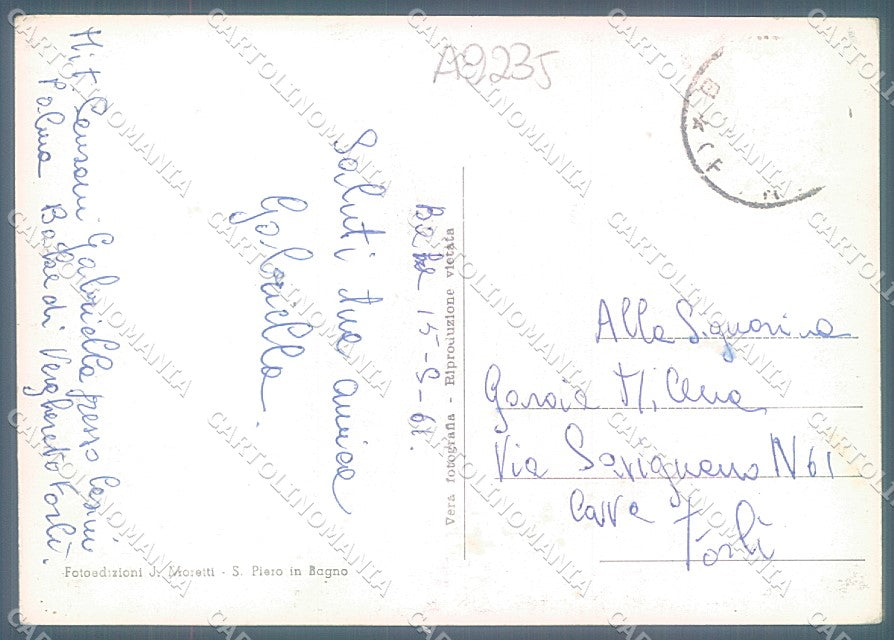 A09235
Mit. Sensani Gabriella presso Cesini
Palma Balze di Verghereto Forlì.
Saluti tua amica
Gabriella.
15-9-61.
Vera fotografia - Riproduzione vietata
Alla Signorina
Milena
Via Savignano N 61
Cava
Forlì
Fotoedizioni J. Moretti - S. Piero in Bagno
CARTOLINOMANIA